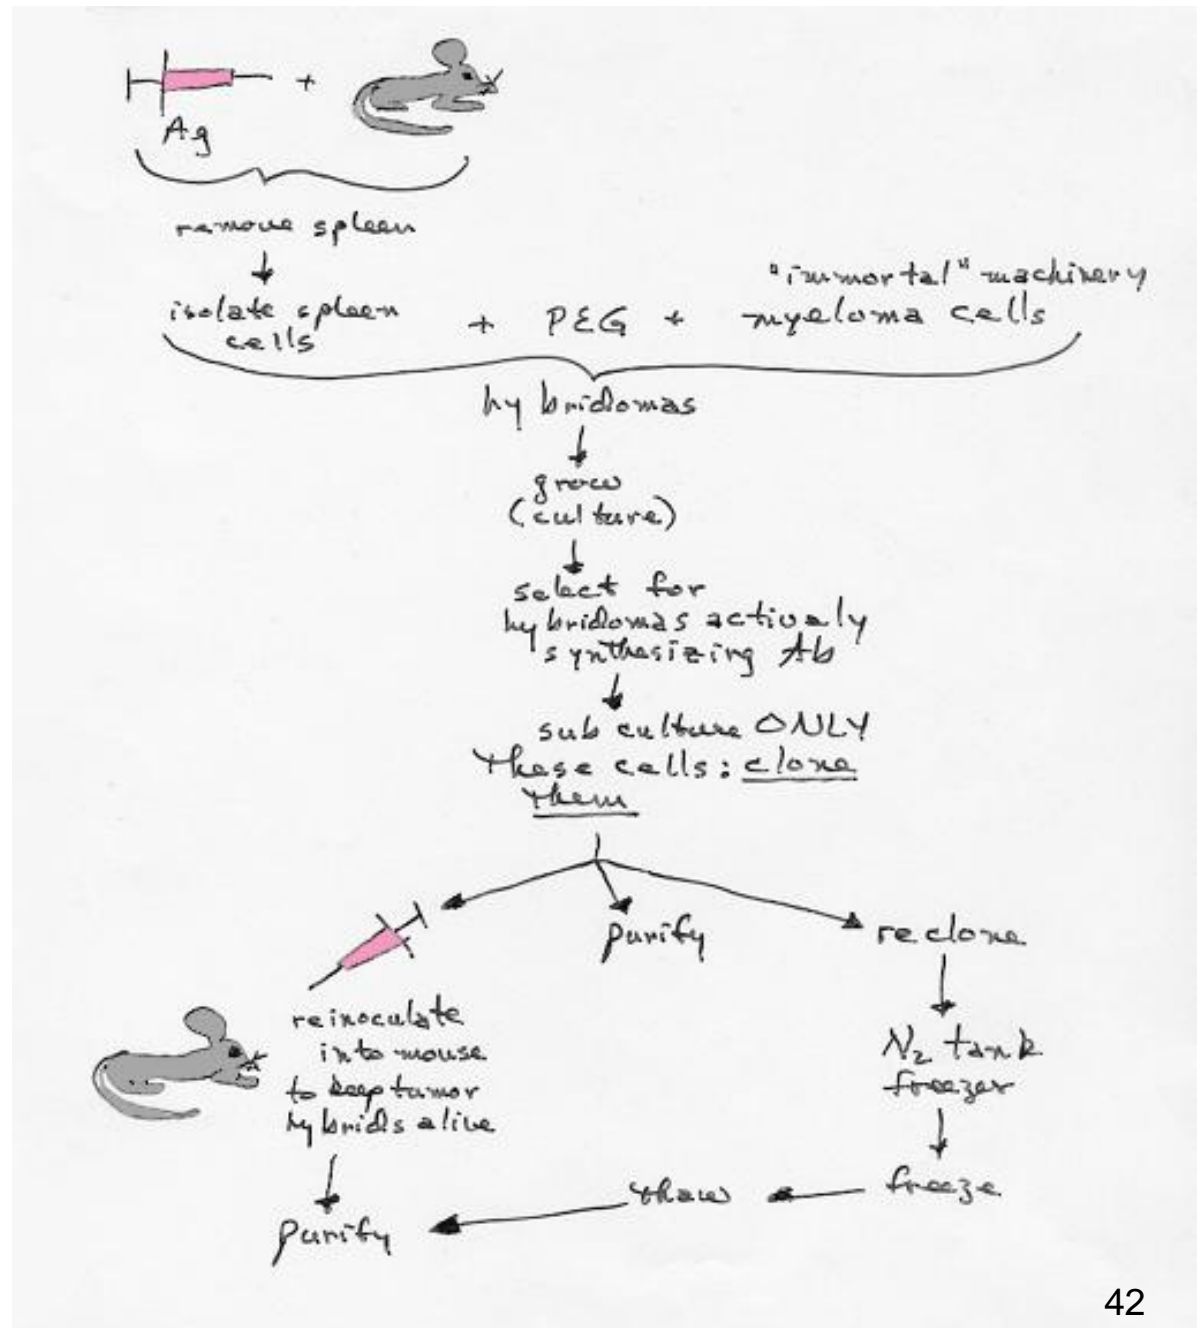 +
Ag
remove spleen
isolate spleen
cells
+ PEG +
"immortal" machinery
myeloma cells
hybridomas
grow
(culture)
select for
hybridomas actively
synthesizing Ab
sub culture ONLY
these cells: clone
them
purify
reclone
reinoculate
into mouse
to keep tumor
hybrids alive
N₂ tank
freezer
freeze
thaw
purify
42